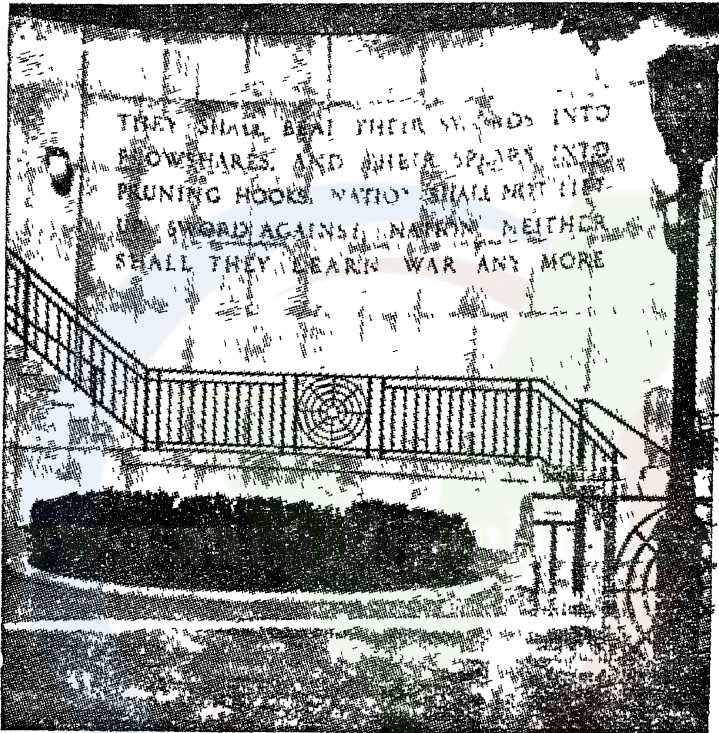 THEY SHALL BEAT THEIR SWORDS INTO
PLOWSHARES. AND THEIR SPEARS INTO
PRUNING HOOKS. NATION SHALL NOT LIFT
UP SWORD AGAINST NATION. NEITHER
SHALL THEY LEARN WAR ANY MORE